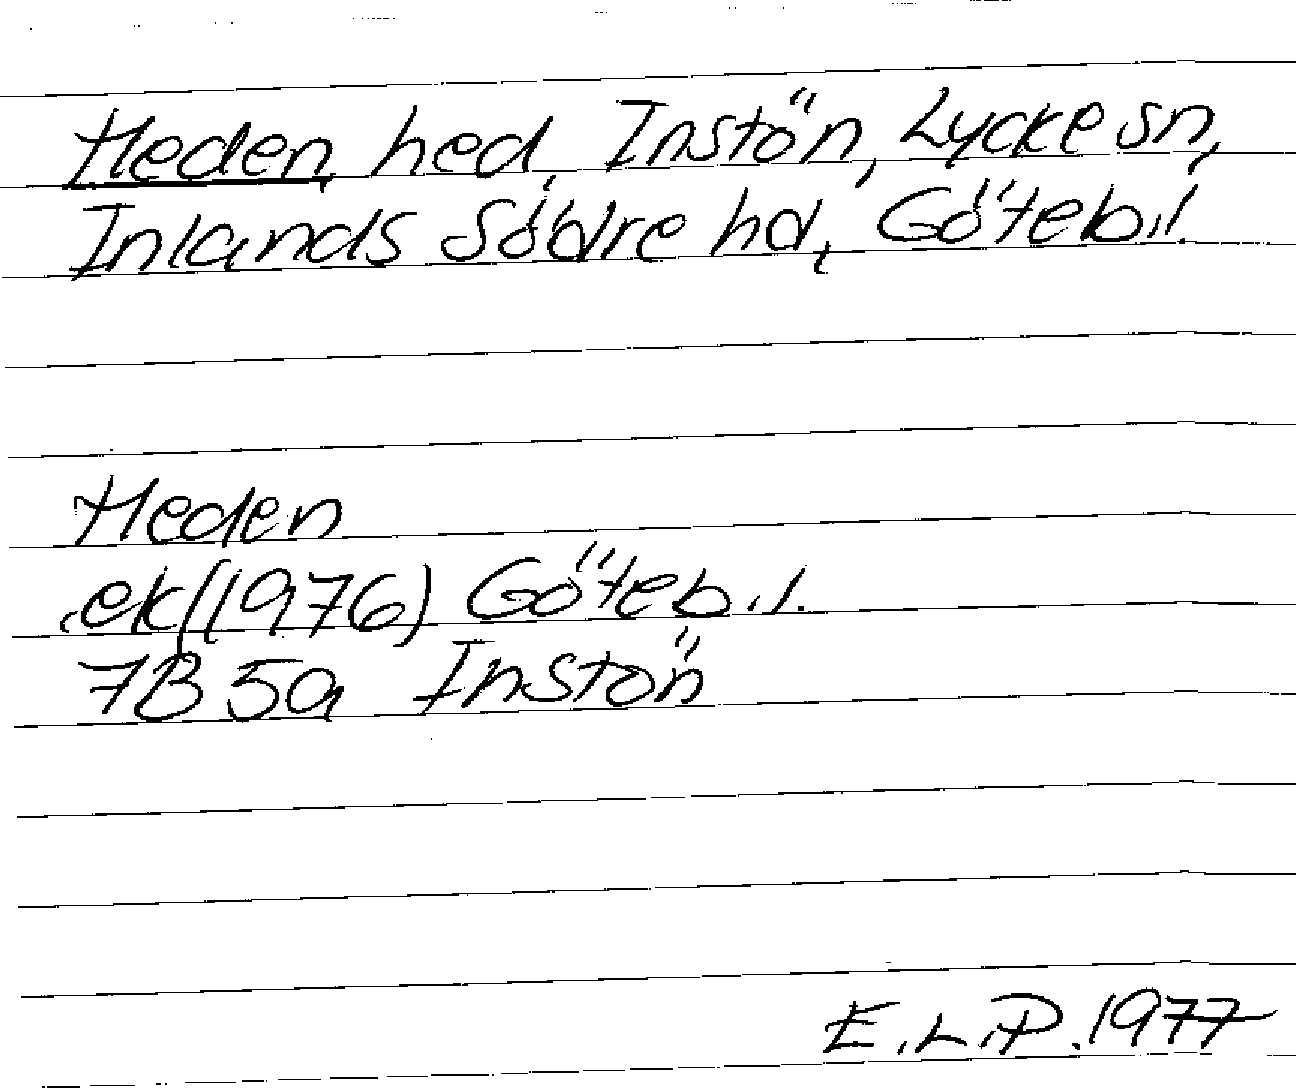 Heden, hed, Instön, Lycke sn,
Inlands Södre hd, Göteb.l.
Heden
ek (1976) Göteb.l.
7B 5a Instön
E.L.P. 1977